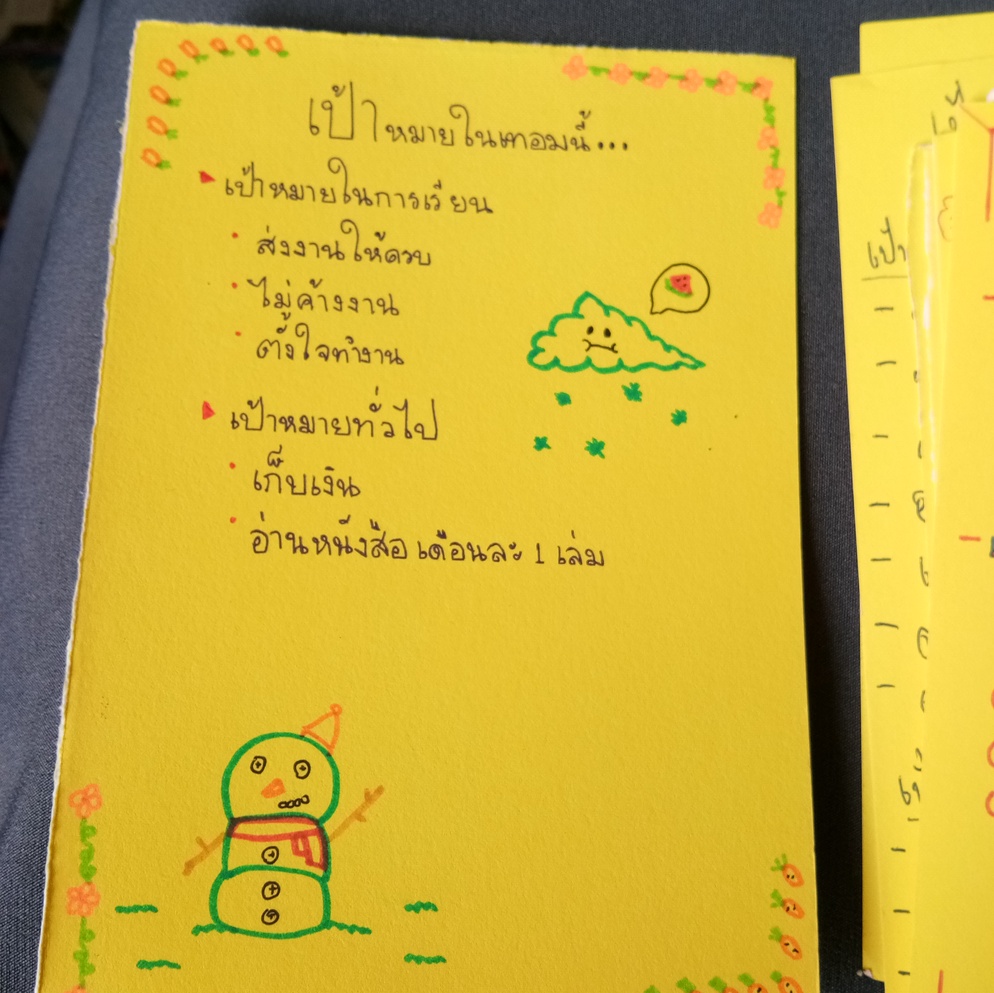 เป้าหมายในเทอมนี้...
เป้าหมายในการเรียน
ส่งงานให้ครบ
ไม่ค้างงาน
ตั้งใจทำงาน
เป้าหมายทั่วไป
เก็บเงิน
อ่านหนังสือเดือนละ 1 เล่ม